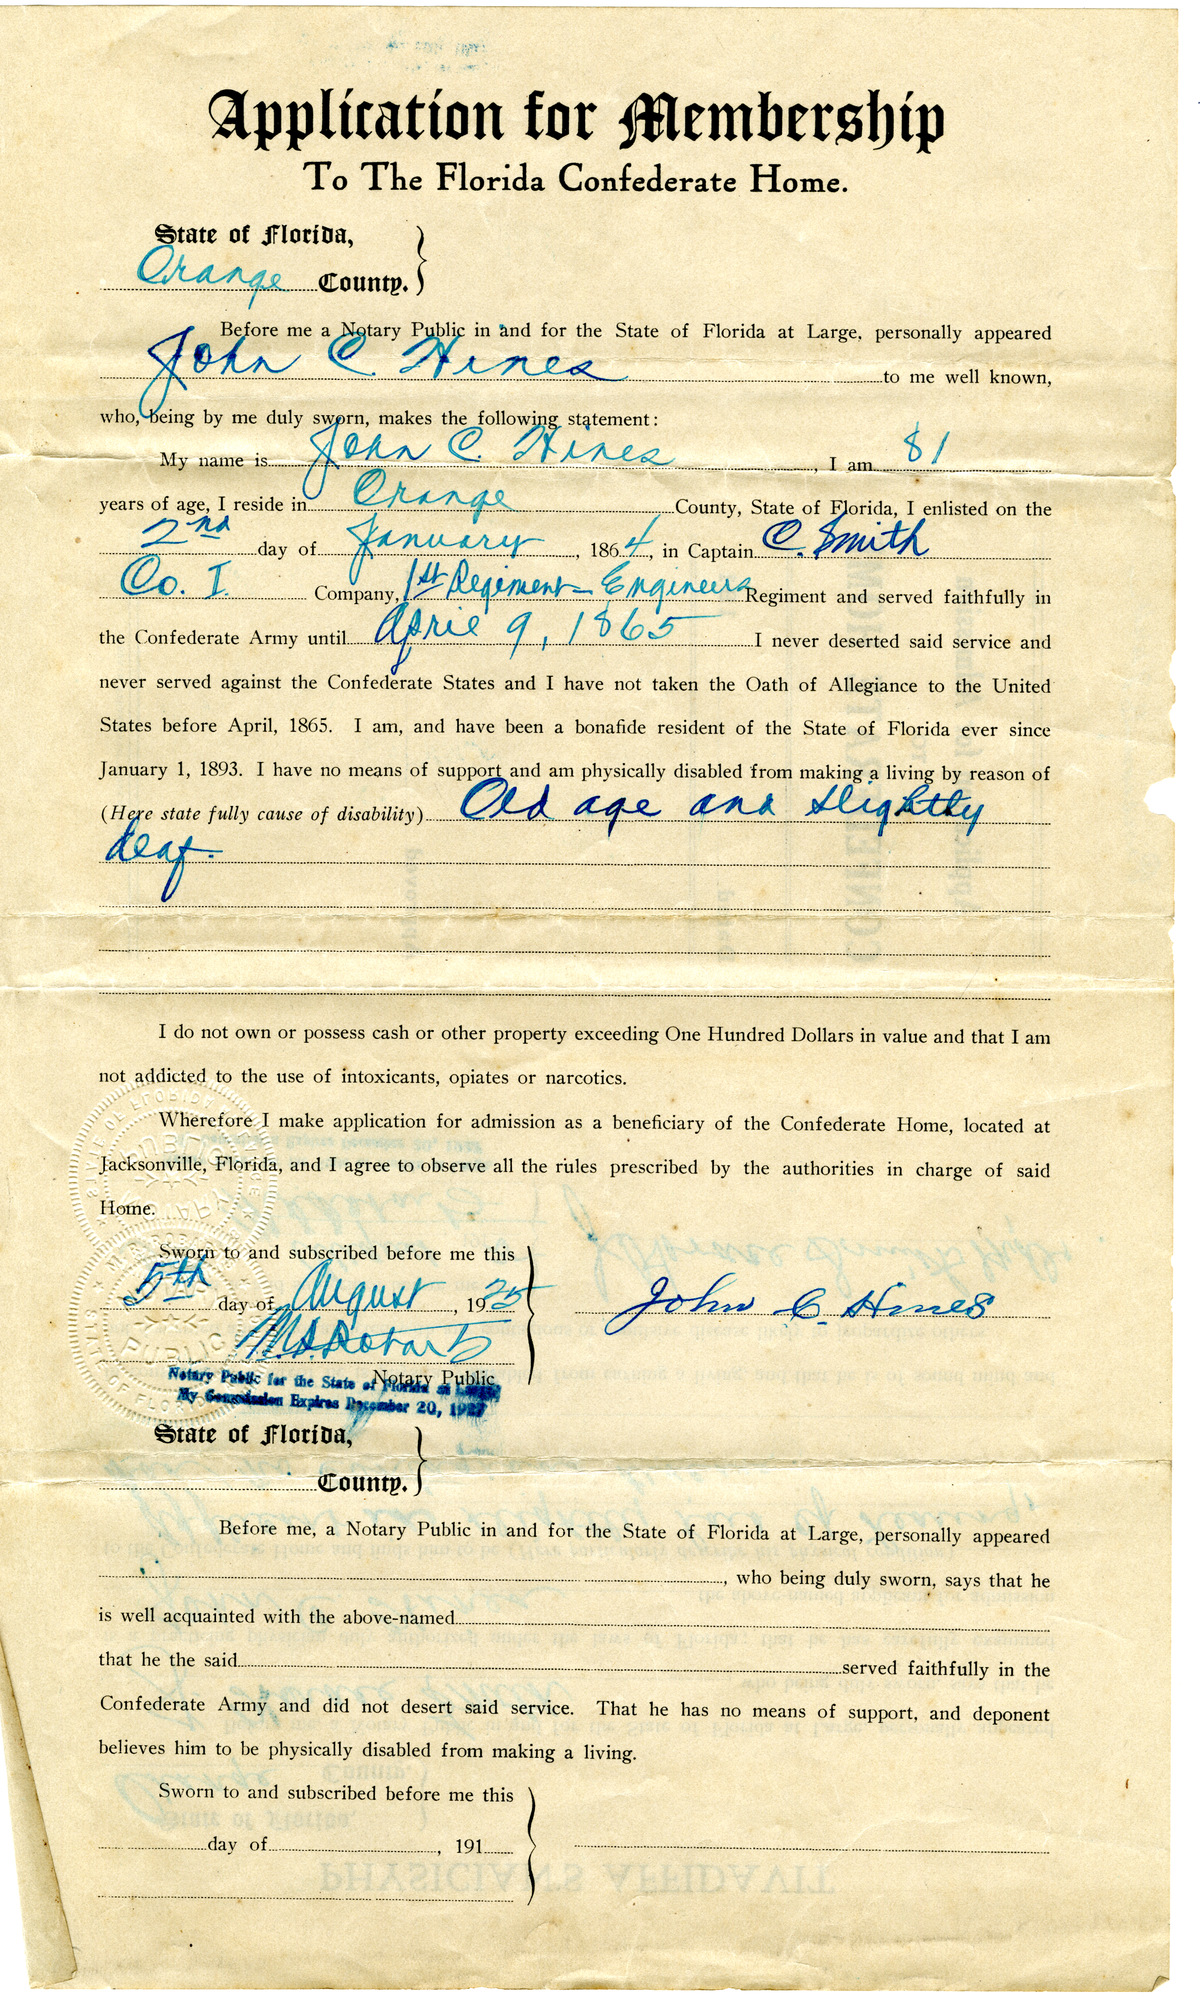 Application for Membership
To The Florida Confederate Home.
State of Florida,
Orange County.
Before me a Notary Public in and for the State of Florida at Large, personally appeared
John C. Hines to me well known,
who, being by me duly sworn, makes the following statement:
My name is John C. Hines, I am 81
years of age, I reside in Orange County, State of Florida, I enlisted on the
2nd day of January, 1864, in Captain C. Smith
Co. I. Company, 1st Regiment - Engineers Regiment and served faithfully in
the Confederate Army until April 9, 1865 I never deserted said service and
never served against the Confederate States and I have not taken the Oath of Allegiance to the United
States before April, 1865. I am, and have been a bonafide resident of the State of Florida ever since
January 1, 1893. I have no means of support and am physically disabled from making a living by reason of
(Here state fully cause of disability) Old age and slightly
deaf.
I do not own or possess cash or other property exceeding One Hundred Dollars in value and that I am
not addicted to the use of intoxicants, opiates or narcotics.
Wherefore I make application for admission as a beneficiary of the Confederate Home, located at
Jacksonville, Florida, and I agree to observe all the rules prescribed by the authorities in charge of said
Home.
Sworn to and subscribed before me this
5th day of August, 1925 John C. Hines
Notary Public
Notary Public for the State of Florida at Large
My Commission Expires December 20, 1927
State of Florida,
County.
Before me, a Notary Public in and for the State of Florida at Large, personally appeared
, who being duly sworn, says that he
is well acquainted with the above-named
that he the said served faithfully in the
Confederate Army and did not desert said service. That he has no means of support, and deponent
believes him to be physically disabled from making a living.
Sworn to and subscribed before me this
day of , 191
PHYSICIAN'S AFFIDAVIT